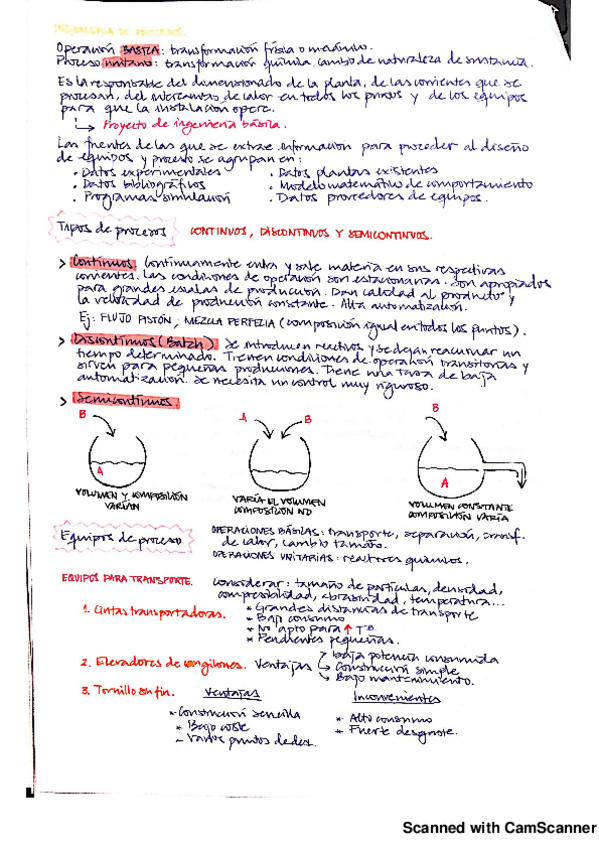 INGENIERIA DE PROCESOS.
Operación BÁSICA: transformación física o mecánica.
Proceso unitario: transformación química, cambio de naturaleza de sustancia.
Es la responsable del dimensionado de la planta, de las corrientes que se
procesan, del intercambio de calor en todos los puntos y de los equipos
para que la instalación opere.
↳ Proyecto de ingeniería básica.
Las fuentes de las que se extrae información para proceder al diseño
de equipos y proceso se agrupan en:
· Datos experimentales · Datos plantas existentes
· Datos bibliográficos · Modelo matemático de comportamiento
· Programas simulación · Datos proveedores de equipos.
Tipos de procesos CONTINUOS, DISCONTINUOS Y SEMICONTINUOS.
> Continuos. Continuamente entra y sale materia en sus respectivas
corrientes. Las condiciones de operación son estacionarias. Son apropiados
para grandes escalas de producción. Dan calidad al producto y
la velocidad de producción constante. Alta automatización.
Ej: FLUJO PISTÓN, MEZCLA PERFECTA (composición igual en todos los puntos).
> Discontinuos (Batch). Se introducen reactivos y se dejan reaccionar un
tiempo determinado. Tienen condiciones de operación transitorias y
sirven para pequeñas producciones. Tiene una tasa de baja
automatización. Se necesita un control muy riguroso.
> Semicontinuos.
B A B B
A A
VOLUMEN Y COMPOSICIÓN
VARÍAN
VARÍA EL VOLUMEN
COMPOSICIÓN NO
VOLUMEN CONSTANTE
COMPOSICIÓN VARÍA
Equipos de proceso
OPERACIONES BÁSICAS: transporte, separación, transf.
de calor, cambio tamaño.
OPERACIONES UNITARIAS: reactores químicos.
EQUIPOS PARA TRANSPORTE. Considerar: tamaño de partículas, densidad,
compresibilidad, abrasividad, temperatura...
1. Cintas transportadoras.
* Grandes distancias de transporte
* Bajo consumo
* No apto para ↑ Tª
* Pendientes pequeñas.
2. Elevadores de cangilones. Ventajas
baja potencia consumida
Construcción simple
Bajo mantenimiento.
3. Tornillo sin fin.
Ventajas
* Construcción sencilla
* Bajo coste
- Varios puntos de des.
Inconvenientes
* Alto consumo
* Fuerte desgaste.
Scanned with CamScanner